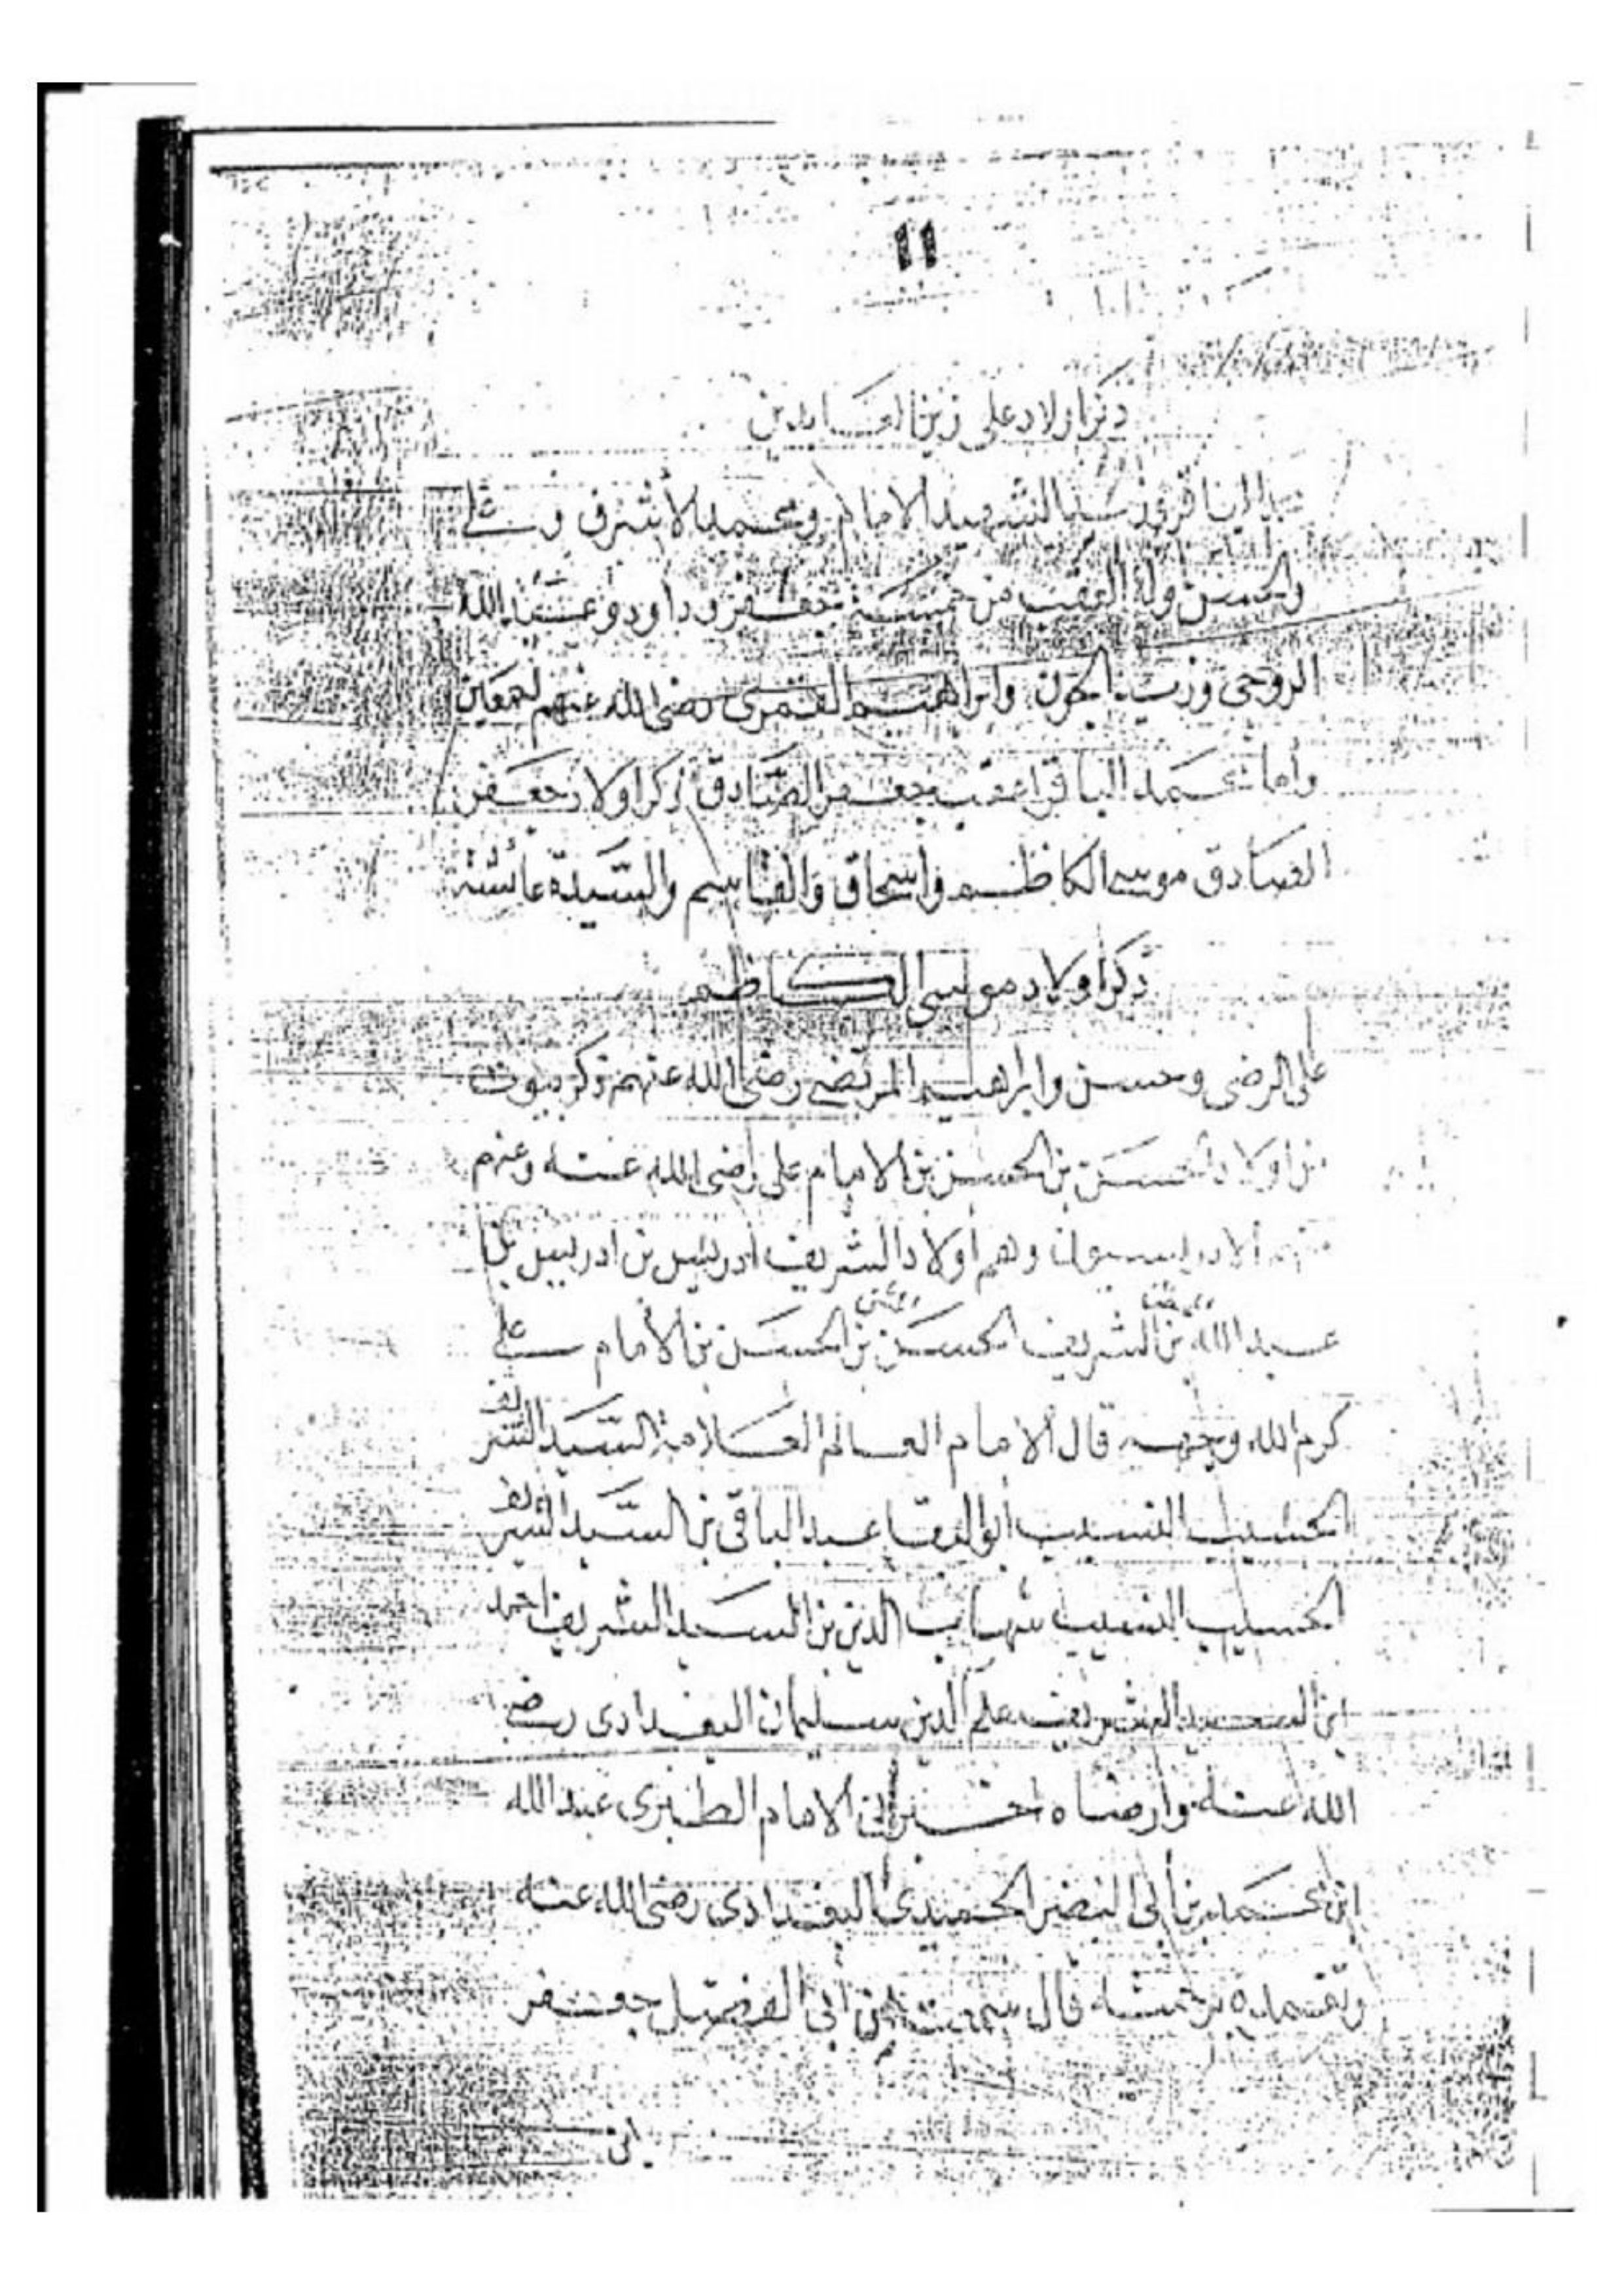 ١١
ذكر اولاد على زين العابدين
الباقر وزيد الشهيد الامام ومحمد الأشرف وعلى
والحسن وله العقب من خمسة جعفر وداود وعبد الله
وابراهيم القمرى رضى الله عنهم اجمعين
وأما محمد الباقر اعقب جعفر الصادق ذكر اولاد جعفر
الصادق موسى الكاظم واسحاق والقاسم والسيدة عائشة
ذكر اولاد موسى الكاظم
على الرضى وحسن وابراهيم المرتضى رضى الله عنهم ذكر بيوت
من اولاد الحسن بن الحسن بن الامام على رضى الله عنه وعنهم
الادريسيون وهم أولاد الشريف ادريس بن ادريس بن
عبد الله بن الشريف الحسن بن الحسن بن الأمام على
كرم الله وجهه قال الامام العالم العلامة السيد الشريف
الحسيب النسيب أبو البقا عبد الباقى بن السيد الشريف
الحسيب النسيب شهاب الدين بن السيد الشريف احمد
ابن السيد الشريف علم الدين سليمان البغدادى رضى
الله عنه وارضاه اخبرنى الامام الطبرى عبد الله
ابن محمد بن أبى النضر الحميدى البغدادى رضى الله عنه
وتغمده برحمته قال سمعت من أبى الفضل جعفر
ابن